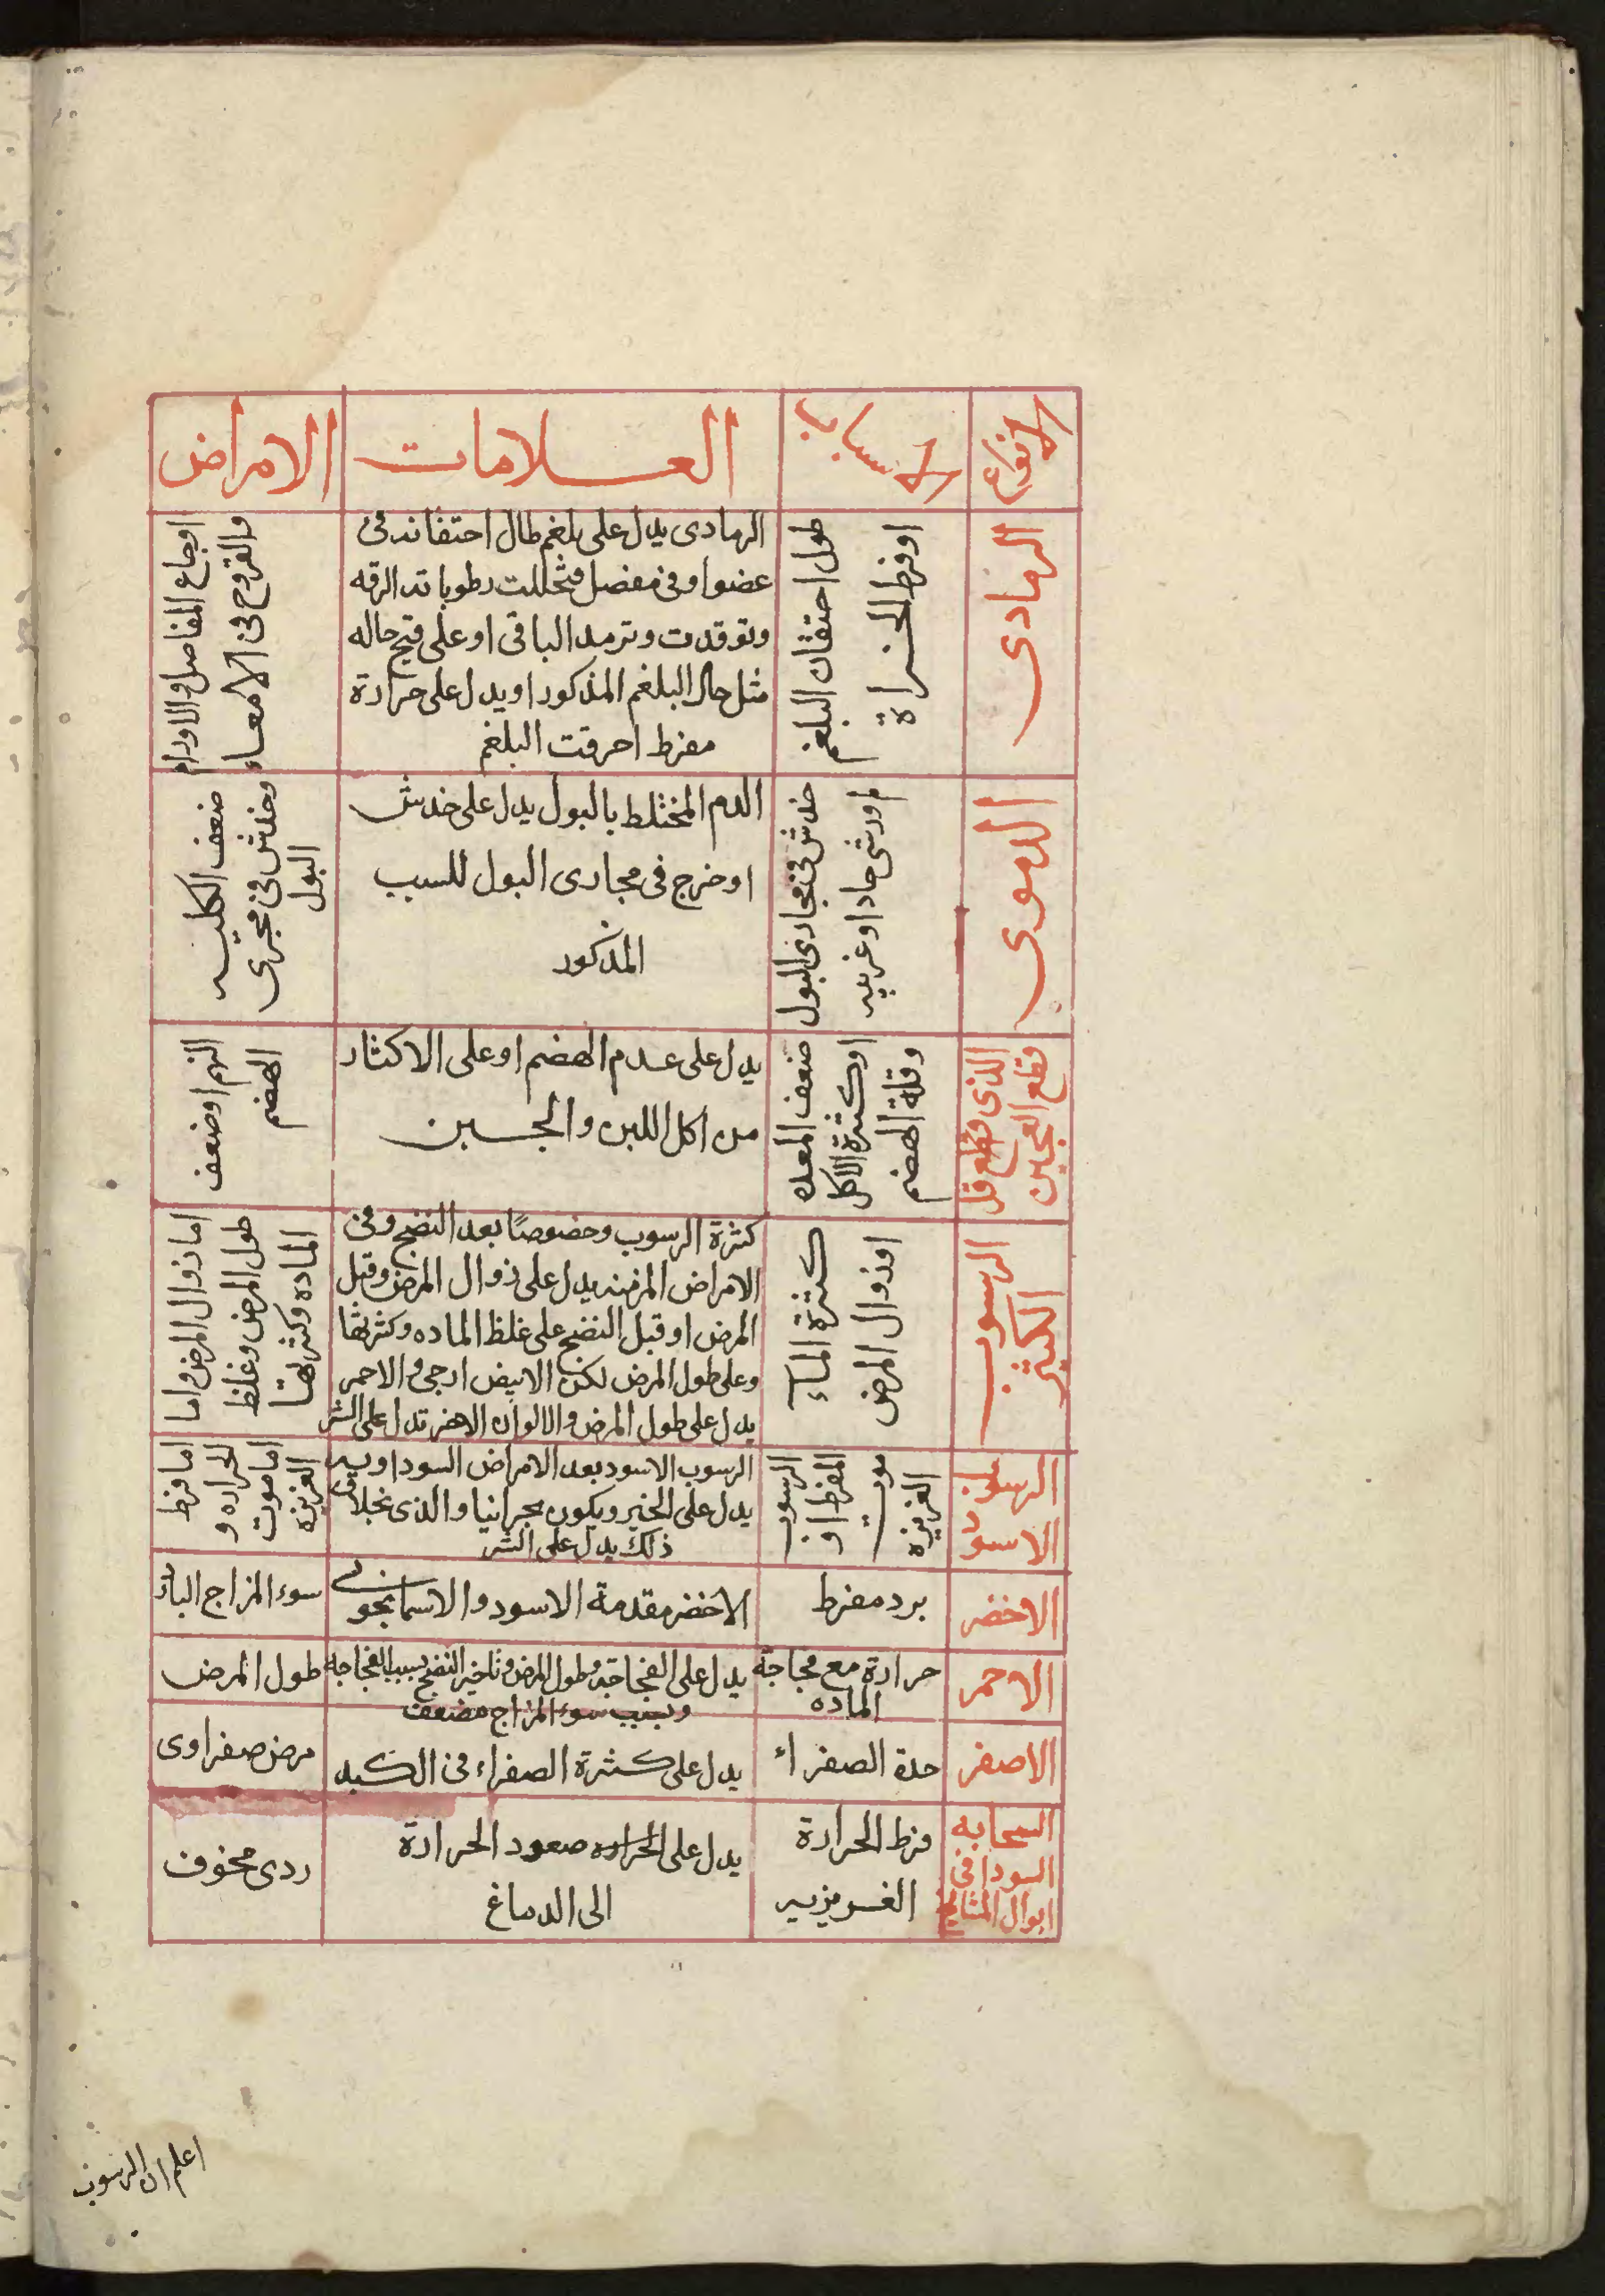 الانواع
الاسباب
العلامات
الامراض
الرمادى
طول احتقان البلغم
او فرط الحرارة
الرمادى يدل على بلغم طال احتقانه فى
عضو او فى مفصل فتحللت رطوباته الرقه
وتوقدت وترمد الباقى او على قيح حاله
مثل حال البلغم المذكور او يدل على حرارة
مفرط احرقت البلغم
اوجاع المفاصل والاورام
والقروح فى الامعاء
الدموى
خدش فى مجارى البول
حاد او غريبه
الدم المختلط بالبول يدل على خدش
او خرج فى مجارى البول للسبب
المذكور
ضعف الكليه
وخدش فى مجرى
البول
قطع العجين
الذى قطع قل
ضعف المعده
او كثرة الاكل
وقلة الهضم
يدل على عدم الهضم او على الاكثار
من اكل اللبن والجبن
النهم او ضعف
الهضم
الرسوب
الكثير
كثرة الماء
او زوال المرض
كثرة الرسوب وخصوصًا بعد النضج وفى
الامراض المزمنه يدل على زوال المرض وقبل
المرض او قبل النضج على غلظ الماده وكثرتها
وعلى طول المرض لكن الابيض ارجى والاحمر
يدل على طول المرض والالوان الاخر تدل على الشر
اما زوال المرض واما
طول المرض وغلظ
الماده وكثرتها
الرسوب
الاسود
الرسوب
المفرط او
موت
الغريزه
الرسوب الاسود بعد الامراض السوداويه
يدل على الخير ويكون بحرانيا والذى بخلاف
ذلك يدل على الشر
اما فرط
الحراره و
اما موت
الغريزه
الاخضر
برد مفرط
الاخضر مقدمة الاسود والاسمانجونى
سوء المزاج البارد
الاحمر
حرارة مع فجاجة
الماده
يدل على الفجاجة وطول المرض وتاخير النضج بسبب الفجاجه
وبسبب سوء المزاج مضعف
طول المرض
الاصفر
حدة الصفراء
يدل على كثرة الصفراء فى الكبد
مرض صفراوى
السحابه
السودا فى
ابوال المشايخ
فرط الحرارة
الغريزيه
يدل على الحراره صعود الحرارة
الى الدماغ
ردى مخوف
اعلم ان الرسوب